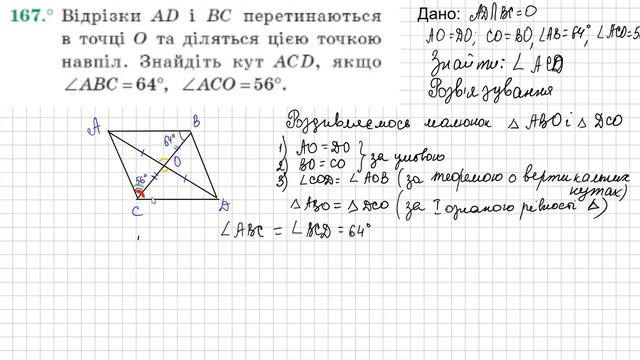 167.° Відрізки AD і BC перетинаються
в точці O та діляться цією точкою
навпіл. Знайдіть кут ACD, якщо
∠ABC = 64°, ∠ACO = 56°.
Дано: AD∩BC=O
AO=DO; CO=BO, ∠AB=64°, ∠ACO=5
Знайти: ∠ACD
Розв'язування
Роздивляємось малюнок △ ABO і △ DCO
1) AO = DO
2) BO = CO } за умовою
3) ∠COD = ∠AOB (за теоремою о вертикальних
кутах)
△ABO = △DCO (за I ознакою рівності △)
∠ABC = ∠BCD = 64°
A
B
64°
O
56°
C
D